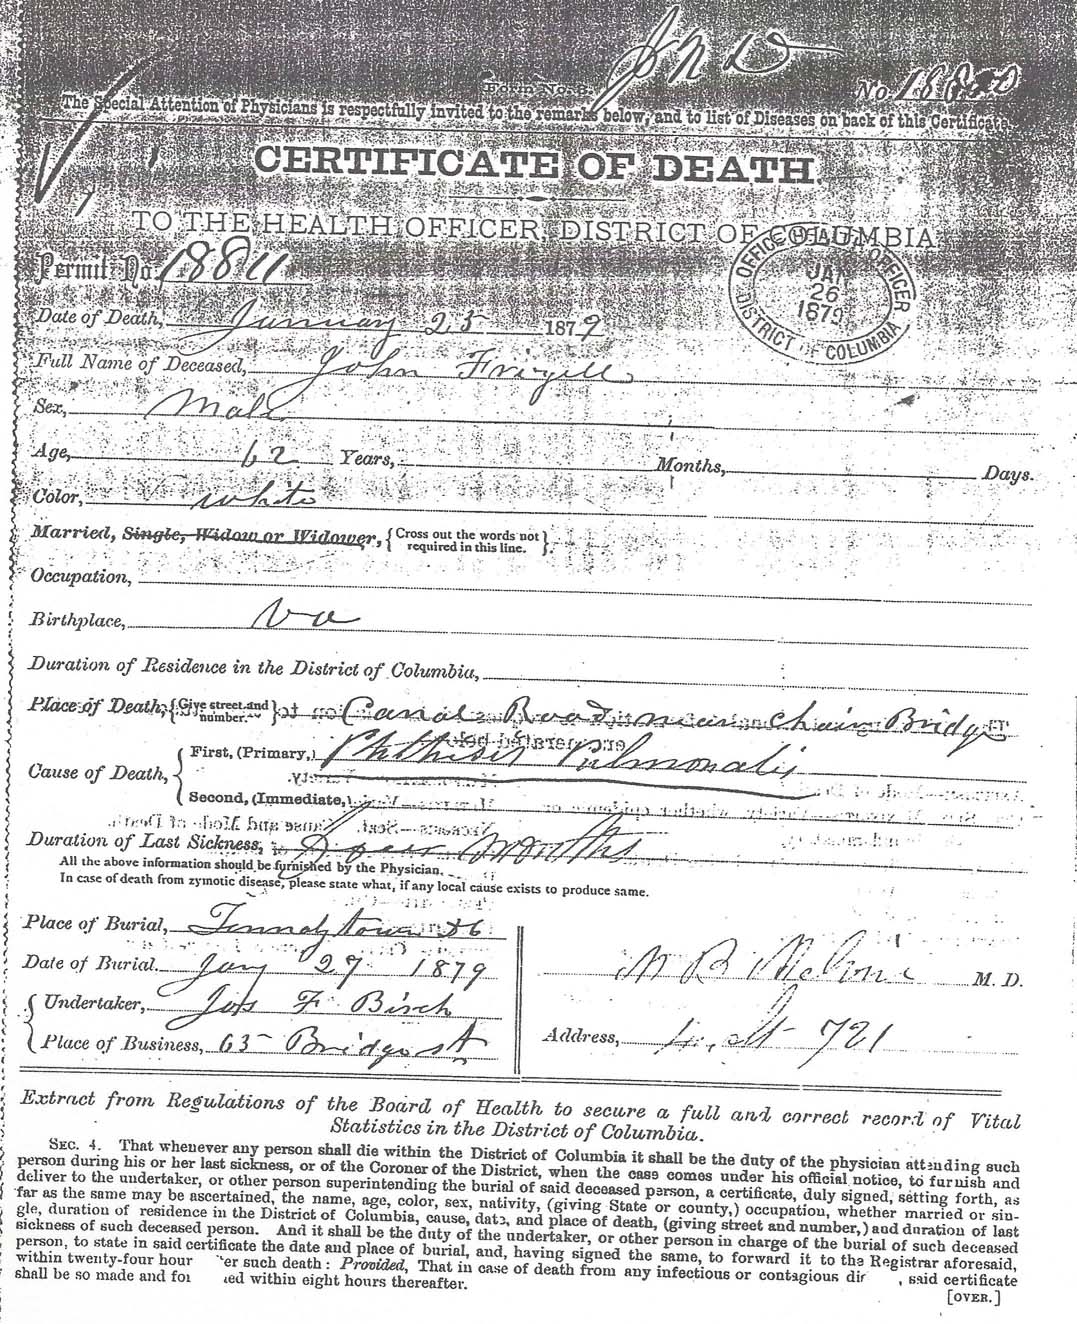 J N D
Form No. 3.
No. 18820
The Special Attention of Physicians is respectfully invited to the remarks below, and to list of Diseases on back of this Certificate.
CERTIFICATE OF DEATH.
TO THE HEALTH OFFICER, DISTRICT OF COLUMBIA
Permit No. 18811
OFFICE HEALTH OFFICER
JAN
26
1879
DISTRICT OF COLUMBIA
Date of Death, January 25 1879
Full Name of Deceased, John Frizell
Sex, Male
Age, 62 Years, Months, Days.
Color, White
Married, Single, Widow or Widower, {Cross out the words not required in this line.}
Occupation,
Birthplace, Va
Duration of Residence in the District of Columbia,
Place of Death, {Give street and number.} Canal Road near Chain Bridge
Cause of Death, { First, (Primary,) Phthisis Pulmonalis
Second, (Immediate,)
Duration of Last Sickness, Months
All the above information should be furnished by the Physician.
In case of death from zymotic disease, please state what, if any local cause exists to produce same.
Place of Burial, Tennalytown DC
Date of Burial. Jany 27 1879
{ Undertaker, Jos F. Birch
Place of Business, 63 Bridge st
M. D.
Address, 721
Extract from Regulations of the Board of Health to secure a full and correct record of Vital
Statistics in the District of Columbia.
SEC. 4. That whenever any person shall die within the District of Columbia it shall be the duty of the physician attending such
person during his or her last sickness, or of the Coroner of the District, when the case comes under his official notice, to furnish and
deliver to the undertaker, or other person superintending the burial of said deceased person, a certificate, duly signed, setting forth, as
far as the same may be ascertained, the name, age, color, sex, nativity, (giving State or county,) occupation, whether married or sin-
gle, duration of residence in the District of Columbia, cause, date, and place of death, (giving street and number,) and duration of last
sickness of such deceased person. And it shall be the duty of the undertaker, or other person in charge of the burial of such deceased
person, to state in said certificate the date and place of burial, and, having signed the same, to forward it to the Registrar aforesaid,
within twenty-four hour er such death: Provided, That in case of death from any infectious or contagious di , said certificate
shall be so made and fo ed within eight hours thereafter.
[OVER.]